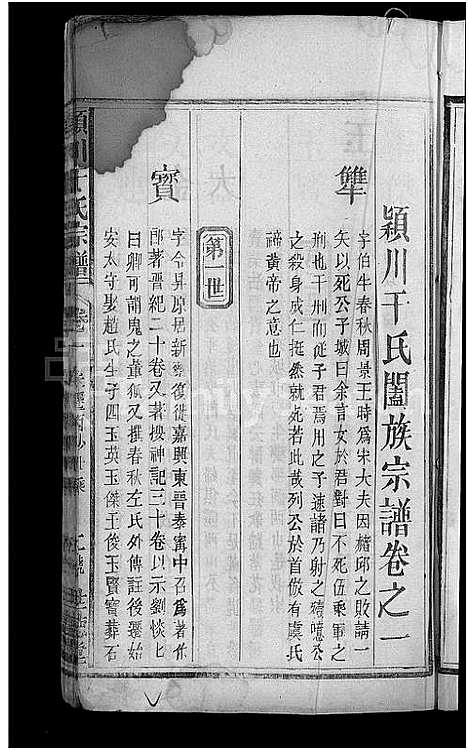 穎川干氏闔族宗譜卷之一
犨
字伯牛春秋周景王時爲宋大夫因赭邱之敗請一
矢以死公子城曰余言女於君對曰不死伍乘軍之
刑也干刑而從子君焉用之子速諸乃射之殪噫公
之殺身成仁挺然就死若此哉列公於首倣有虞氏
禘黃帝之意也
第一世
寳
字令昇原居新蔡復徙嘉興東晉泰甯中召爲著作
郎著晉紀二十卷又著搜神記三十卷以示劉惔
曰卿可謂鬼之董狐又撰春秋左氏外傳註後遷始
安太守娶趙氏生子四玉英玉傑玉俊玉賢寳葬石
穎川干氏宗譜
卷一